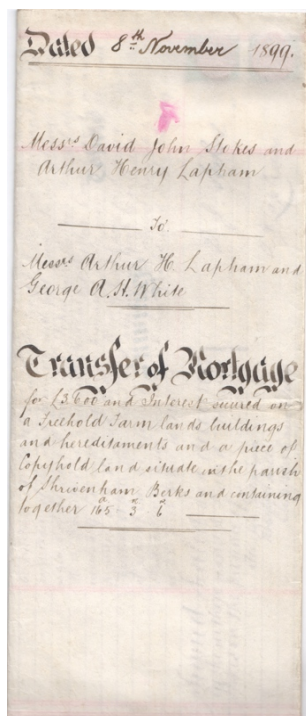 Dated 8th November 1899.
Messrs David John Stokes and
Arthur Henry Lapham
To
Messrs Arthur H. Lapham and
George A. H. White
Transfer of Mortgage
for £3600 and Interest secured on
a Freehold Farm lands buildings
and hereditaments and a piece of
Copyhold land situate in the parish
of Shrivenham Berks and containing
together 165a 3r 6p